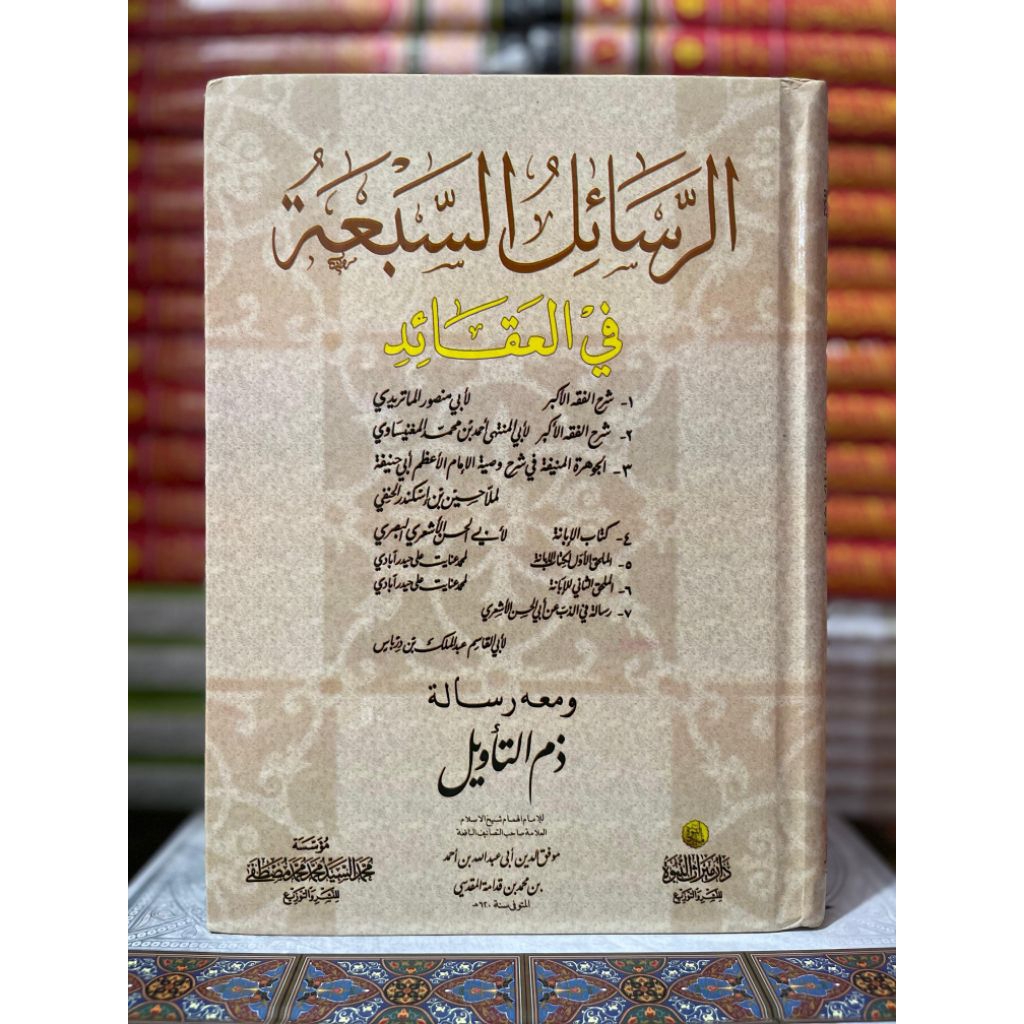 الرَّسَائِلُ السَّبْعَةُ
فِي العَقَائِدِ
١- شرح الفقه الأكبر لأبي منصور الماتريدي
٢- شرح الفقه الأكبر لأبي المنتهى أحمد بن محمد المغنيساوي
٣- الجوهرة المنيفة في شرح وصية الإمام الأعظم أبي حنيفة
لملا حسين بن إسكندر الحنفي
٤- كتاب الإبانة لأبي الحسن الأشعري البصري
٥- الملحق الأول لكتاب الإبانة لمحمد عنايت علي حيدر آبادي
٦- الملحق الثاني للإبانة لمحمد عنايت علي حيدر آبادي
٧- رسالة في الذب عن أبي الحسن الأشعري
لأبي القاسم عبد الملك بن درباس
ومعه رسالة
ذم التأويل
للإمام الهمام شيخ الإسلام
العلامة صاحب التصانيف النافعة
موفق الدين أبي عبد الله بن أحمد
بن محمد بن قدامة المقدسي
المتوفى سنة ٦٢٠هـ
دار ميراث النبوة
للنشر والتوزيع
مؤسسة
محمد السيد محمد محمد مصطفى
للنشر والتوزيع